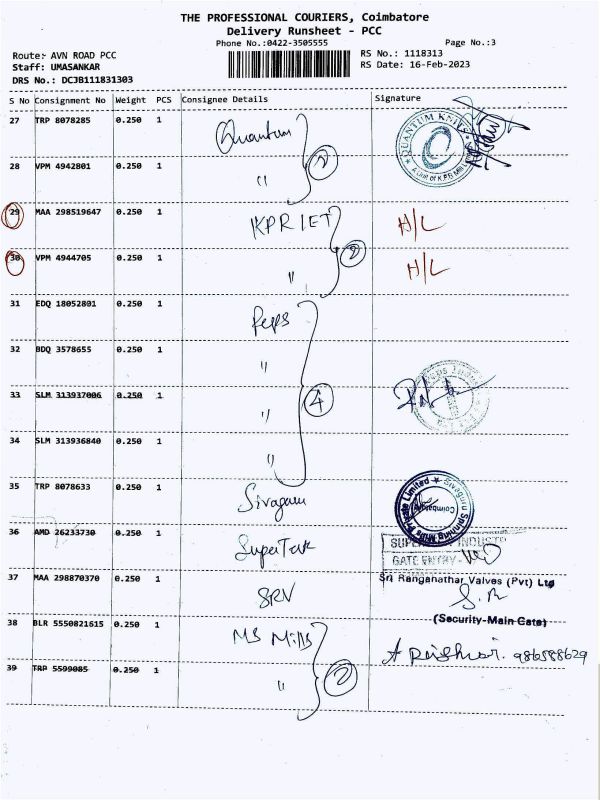 THE PROFESSIONAL COURIERS, Coimbatore
Delivery Runsheet - PCC
Phone No.:0422-3505555 Page No.:3
Route: AVN ROAD PCC RS No.: 1118313
Staff: UMASANKAR RS Date: 16-Feb-2023
DRS No.: DCJB111831303
S No Consignment No Weight PCS Consignee Details Signature
27 TRP 8078285 0.250 1 Quantum QUANTUM KNITS A Unit of K.P.R Mill
28 VPM 4942801 0.250 1 " 2
29 MAA 298519647 0.250 1 KPR IET H/L
30 VPM 4944705 0.250 1 " 2 H/L
31 EDQ 18052801 0.250 1 Peps
32 BDQ 3578655 0.250 1 "
33 SLM 313937006 0.250 1 " 4
34 SLM 313936840 0.250 1 "
35 TRP 8078633 0.250 1 Sivaguru Sivaguru Spinning Mills Private Limited Coimbatore
36 AMD 26233730 0.250 1 SuperTek
GATE ENTRY
37 MAA 298870370 0.250 1 SRV Sri Ranganathar Valves (Pvt) Ltd
(Security-Main Gate)
38 BLR 5550821615 0.250 1 MS Mills 986588629
39 TRP 5599085 0.250 1 " 2